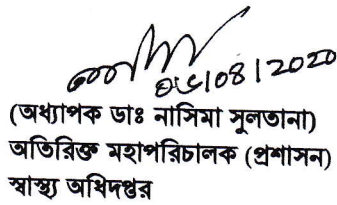 ০৬/০৪/২০২০
(অধ্যাপক ডাঃ নাসিমা সুলতানা)
অতিরিক্ত মহাপরিচালক (প্রশাসন)
স্বাস্থ্য অধিদপ্তর